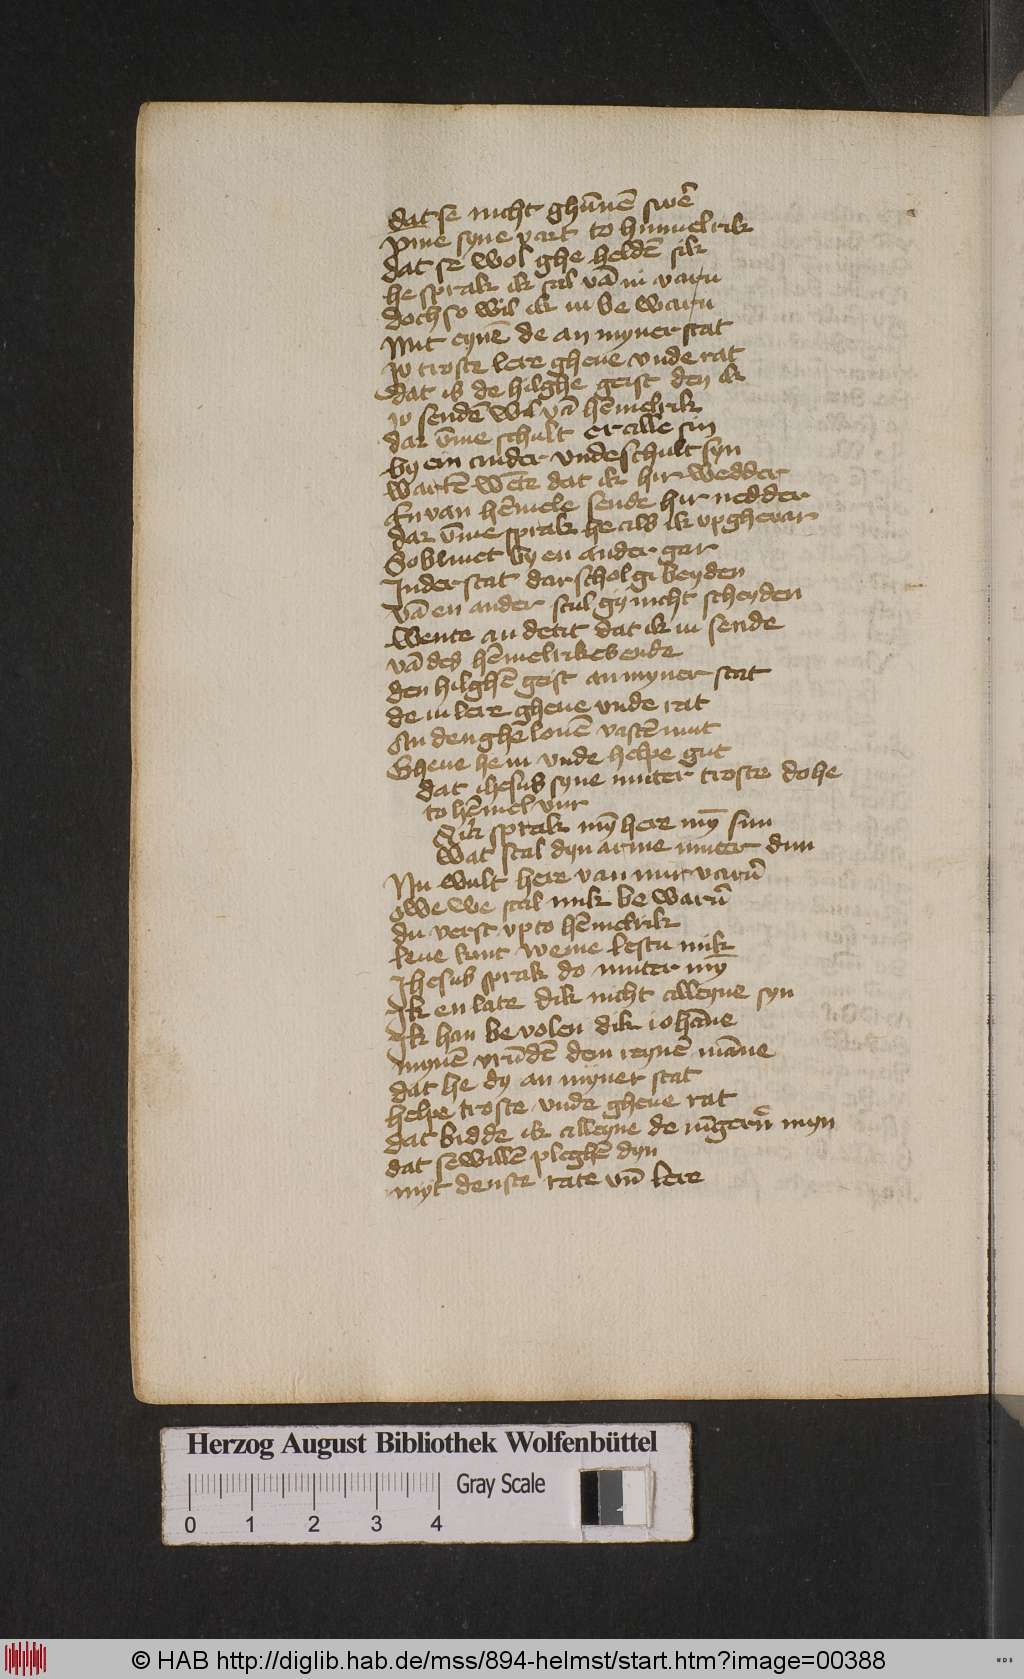 dat se nicht ghūnē swē
vme syne vart to hummelrik
dat se wol ghe heldē sik
he sprak ik sal vā iu varn
doch so wil ik iu be warn
Mit eynē de an myner stat
Jo troste lere gheue vnde rat
dat is de hilghe geist den ik
jo sendē wil vā hēmelrik
dar v̄me schult er alle sin
by ein ander vnde schult syn
wartē wēte dat ik hir wedder
En van hēmele sende hir nedder
dar v̄me sprak he als ik vp ghevar
So bliuet by en ander gar
In der stat dar schol gi beyden
vā en ander scul gy nicht scheyden
Wente an de tit dat ik iu sende
vā des hēmelrikes ende
den hilghē geist an myner stat
de iu lere gheue vnde rat
An den ghē louē vastē mut
Gheue he iu vnde helpe gut
dat ihesus syne muter troste do he
to hēmel vur
Si sprak mȳ here mȳ sun
Wat scal dyn arme muter dun
Nu wult here van mir varn̄
owe we scal mik be warn̄
du verst vp to hēmelrik
leue kint weme lestu mik
Jhesus sprak do muter mȳ
Ik en late dik nicht alleyne syn
Ik han be volen dik iohāne
mynē vrūdē dem reynē māne
dat he dy an myner stat
helpe troste vnde gheue rat
dat bidde ik alleyne de iūgern̄ myn
dat se willē pleghē dyn
myt denste rate vn̄ lere
Herzog August Bibliothek Wolfenbüttel
Gray Scale
0 1 2 3 4
© HAB http://diglib.hab.de/mss/894-helmst/start.htm?image=00388